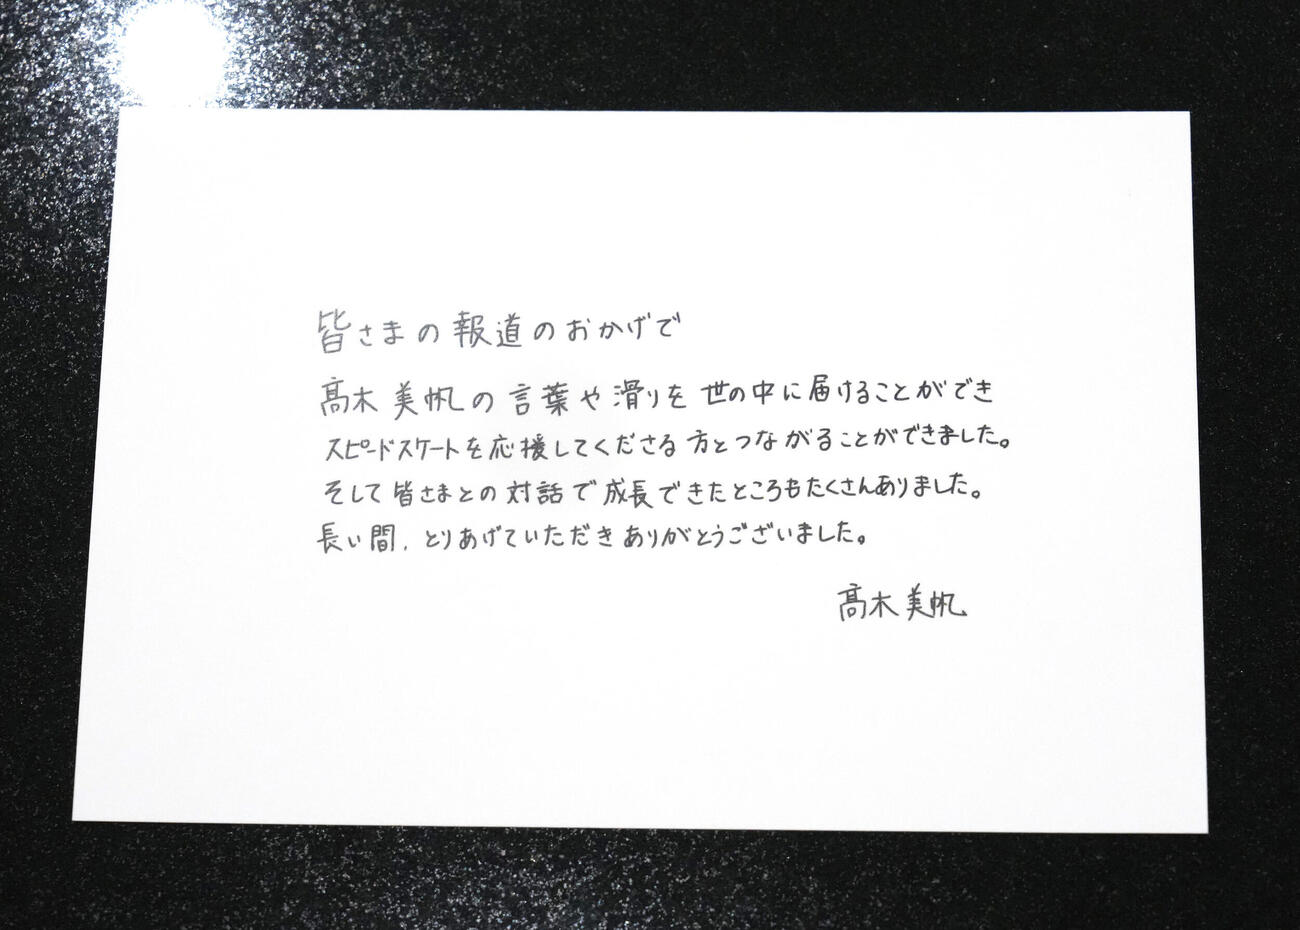 皆さまの報道のおかげで
髙木 美帆の言葉や滑りを 世の中に届けることができ
スピードスケートを応援してくださる方とつながることができました。
そして皆さまとの対話で成長できたところもたくさんありました。
長い間、とりあげていただきありがとうございました。
髙木 美帆